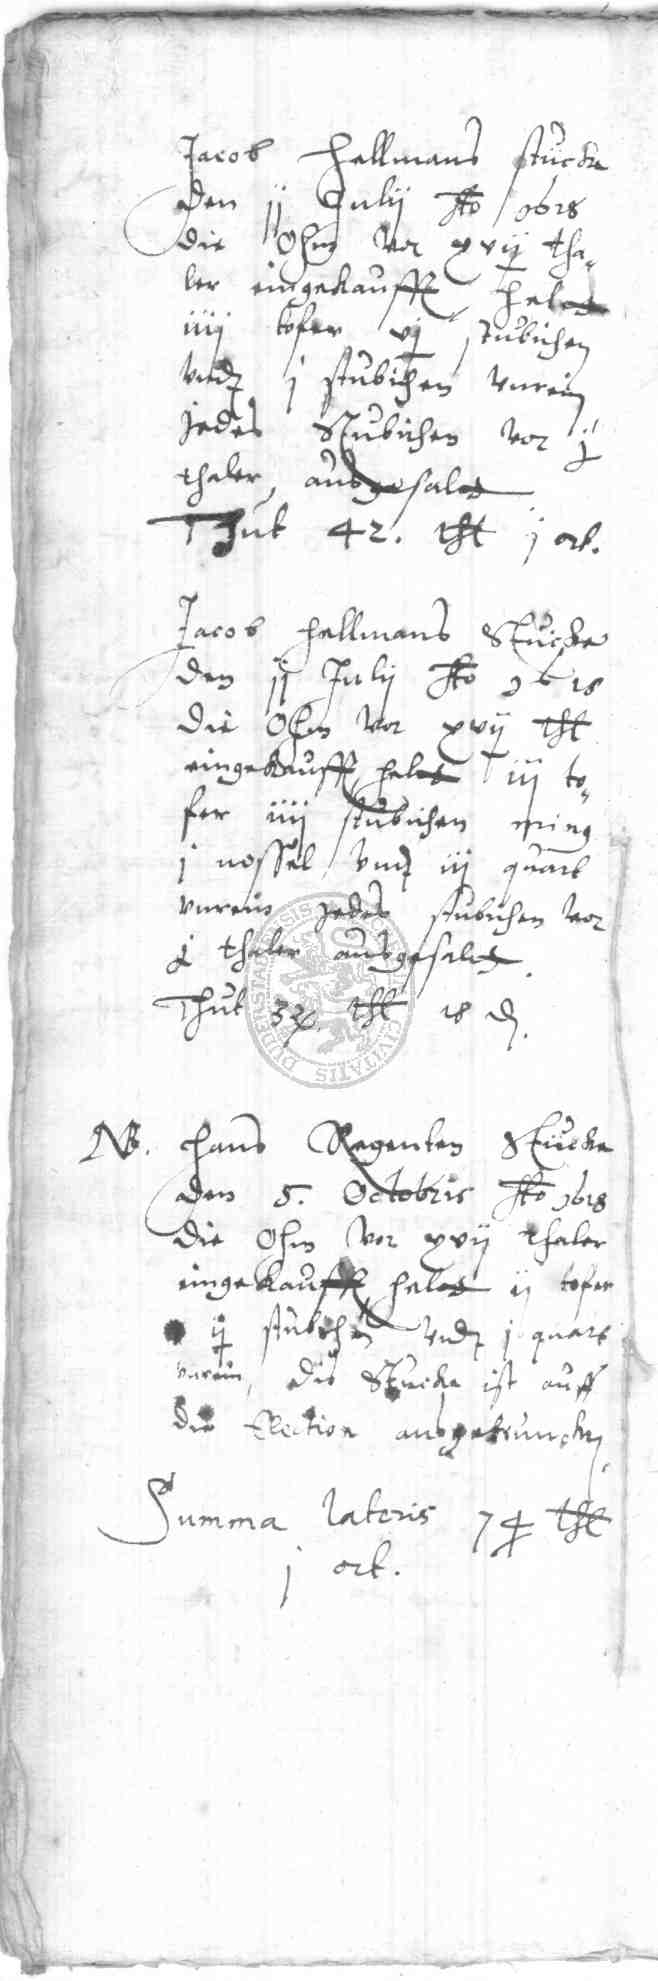 Jacob Hellmans stucke
den ij Julij Ao 1618
die Ohm vor xvij tha-
ler eingekaufft, helt
iiij tofer vj stubichen
vndt j stubichen vnrein
jedes Stubichen vor j
thaler ausgesaltt
Thut 42. thl j ort.
Jacob Hellmans Stucke
den ij Julij Ao 1618
die Ohm vor xvij thl
eingekaufft, heltt iij to-
fer iiij stubichen min9
j nossel vndt iij quart
vnrein jedes stubichen vor
j thaler ausgesaltt.
Thut thl 18 d.
NB. Hans Regenten Stucke
den 5. Octobris Ao 1618
die Ohm vor xvij thaler
eingekaufft, heltt ij tofer
ij stubichen vndt j quart
vnrein, die Stucke ist auff
die Election ausgetruncken
Summa lateris 74 thl
j ort.
SIGILLUM CIVITATIS DUDERSTADENSIS